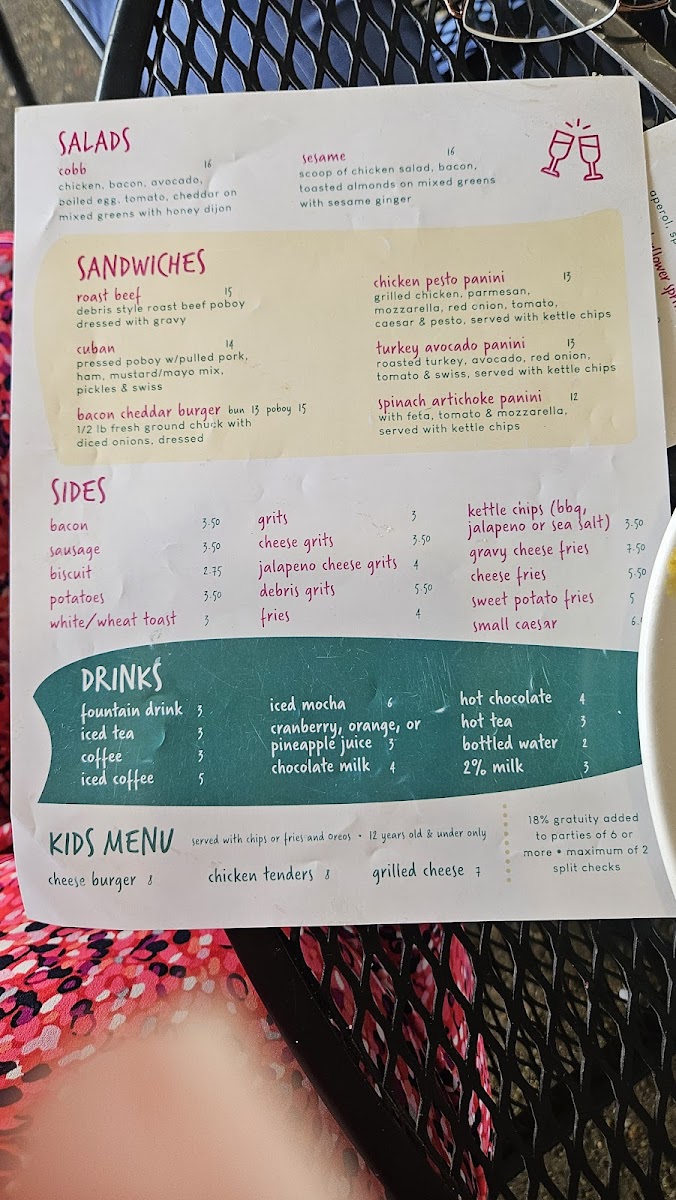 SALADS
cobb 16
chicken, bacon, avocado,
boiled egg, tomato, cheddar on
mixed greens with honey dijon
sesame 16
scoop of chicken salad, bacon,
toasted almonds on mixed greens
with sesame ginger
SANDWICHES
roast beef 15
debris style roast beef poboy
dressed with gravy
cuban 14
pressed poboy w/pulled pork,
ham, mustard/mayo mix,
pickles & swiss
bacon cheddar burger bun 13 poboy 15
1/2 lb fresh ground chuck with
diced onions, dressed
chicken pesto panini 13
grilled chicken, parmesan,
mozzarella, red onion, tomato,
caesar & pesto, served with kettle chips
turkey avocado panini 13
roasted turkey, avocado, red onion,
tomato & swiss, served with kettle chips
spinach artichoke panini 12
with feta, tomato & mozzarella,
served with kettle chips
SIDES
bacon 3.50
sausage 3.50
biscuit 2.75
potatoes 3.50
white/wheat toast 3
grits 3
cheese grits 3.50
jalapeno cheese grits 4
debris grits 5.50
fries 4
kettle chips (bbq,
jalapeno or sea salt) 3.50
gravy cheese fries 7.50
cheese fries 5.50
sweet potato fries 5
small caesar
DRINKS
fountain drink 3
iced tea 3
coffee 3
iced coffee 5
iced mocha 6
cranberry, orange, or
pineapple juice 3
chocolate milk 4
hot chocolate 4
hot tea 3
bottled water 2
2% milk 3
KIDS MENU served with chips or fries and oreos • 12 years old & under only
cheese burger 8
chicken tenders 8
grilled cheese 7
18% gratuity added
to parties of 6 or
more • maximum of 2
split checks
aperol,